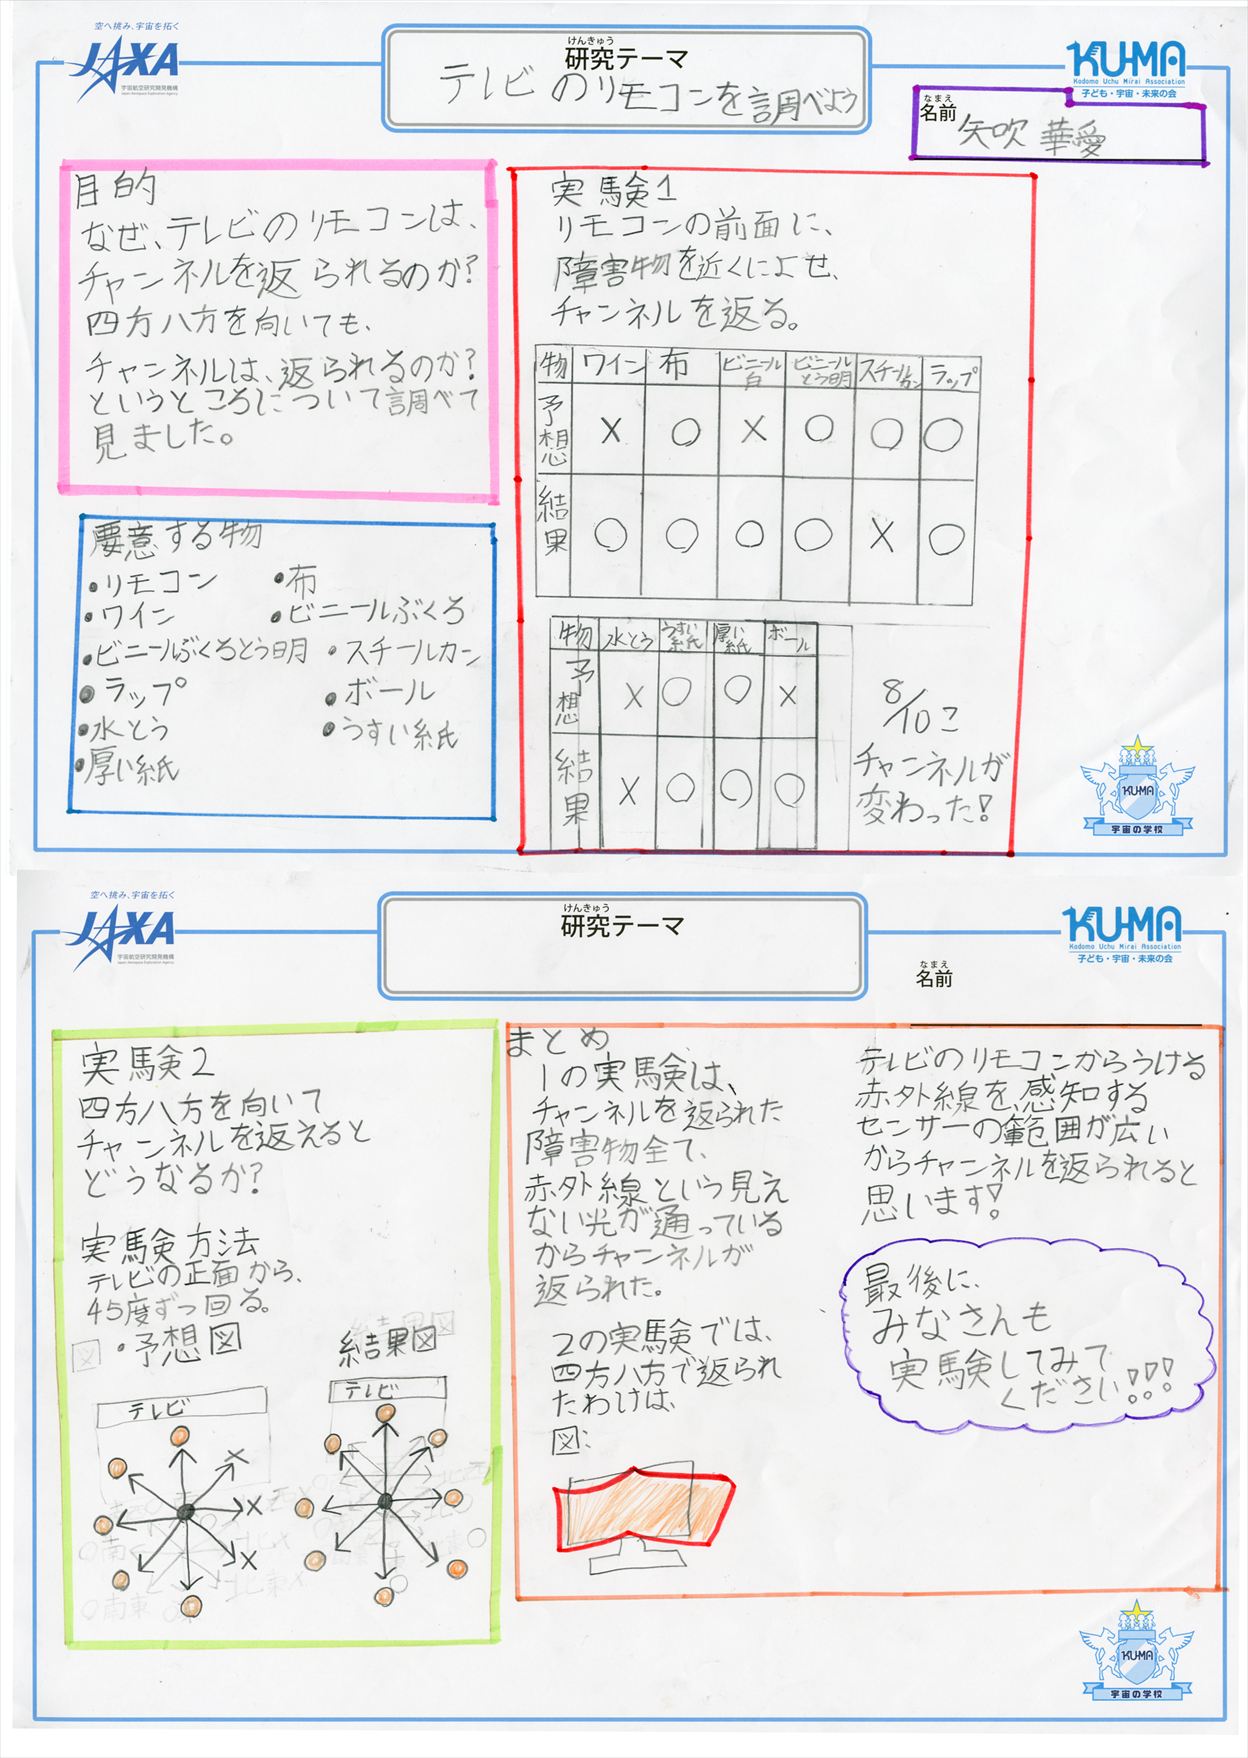 空へ挑み、宇宙を拓く
JAXA
宇宙航空研究開発機構
Japan Aerospace Exploration Agency
けんきゅう
研究テーマ
テレビのリモコンを調べよう
KU-MA
Kodomo Uchu Mirai Association
子ども・宇宙・未来の会
なまえ
名前
矢吹 華愛
目的
なぜ、テレビのリモコンは、
チャンネルを返られるのか?
四方八方を向いても、
チャンネルは、返られるのか?
というところについて調べて
見ました。
要意する物
•リモコン •布
•ワイン •ビニールぶくろ
•ビニールぶくろとう明 •スチールカン
•ラップ •ボール
•水とう •うすい紙
•厚い紙
実験1
リモコンの前面に、
障害物を近くによせ、
チャンネルを返る。
物 ワイン 布 ビニール白 ビニールとう明 スチールカン ラップ
予想 × ○ × ○ ○ ○
結果 ○ ○ ○ ○ × ○
物 水とう うすい紙 厚い紙 ボール
予想 × ○ ○ ×
結果 × ○ ○ ○
8/10こ
チャンネルが
変わった!
KU-MA
宇宙の学校
空へ挑み、宇宙を拓く
JAXA
宇宙航空研究開発機構
Japan Aerospace Exploration Agency
けんきゅう
研究テーマ
KU-MA
Kodomo Uchu Mirai Association
子ども・宇宙・未来の会
なまえ
名前
実験2
四方八方を向いて
チャンネルを返えると
どうなるか?
実験方法
テレビの正面から、
45度ずつ回る。
図 •予想図 結果図
テレビ
× × ×
テレビ
まとめ
1の実験は、
チャンネルを返られた
障害物全て、
赤外線という見え
ない光が通っている
からチャンネルが
返られた。
2の実験では、
四方八方で返られ
たわけは、
図:
テレビのリモコンからうける
赤外線を、感知する
センサーの範囲が広い
からチャンネルを返られると
思います!
最後に、
みなさんも
実験してみて
ください!!!
KU-MA
宇宙の学校